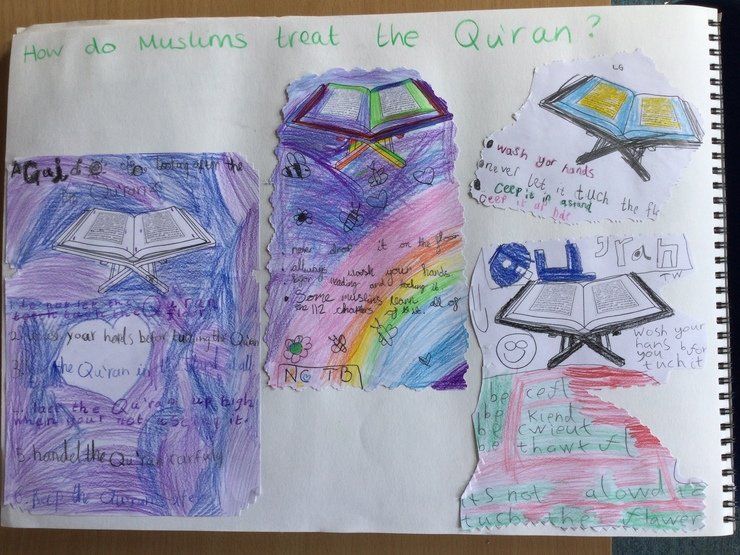 How do Muslims treat the Qu'ran?
A Guid looting after the
Qu'ran
1. Do not let the Qu'ran
touch the floor
2. wash your hands befor tuching the Qu'ran
the Qu'ran in the stand at all
the Qu'ran up high
when your not useing it.
5. handel the Qu'ran carfuly
6. keep the Qu'ran
. never drop it on the floor
. always wash your hands
befor reading and toching it.
. Some muslims learn all of
the 112 chapters of it.
NC TB
LG
• wash yor hands
• never let it tuch the flr
• ceep it in astand
• ceep it up hie
Qu'ran
TW
Wash your
hans befor
you
tuch it
be cefl
be Kiend
be cwieut
be thawtfl
its not alowd to
tuch the flawer